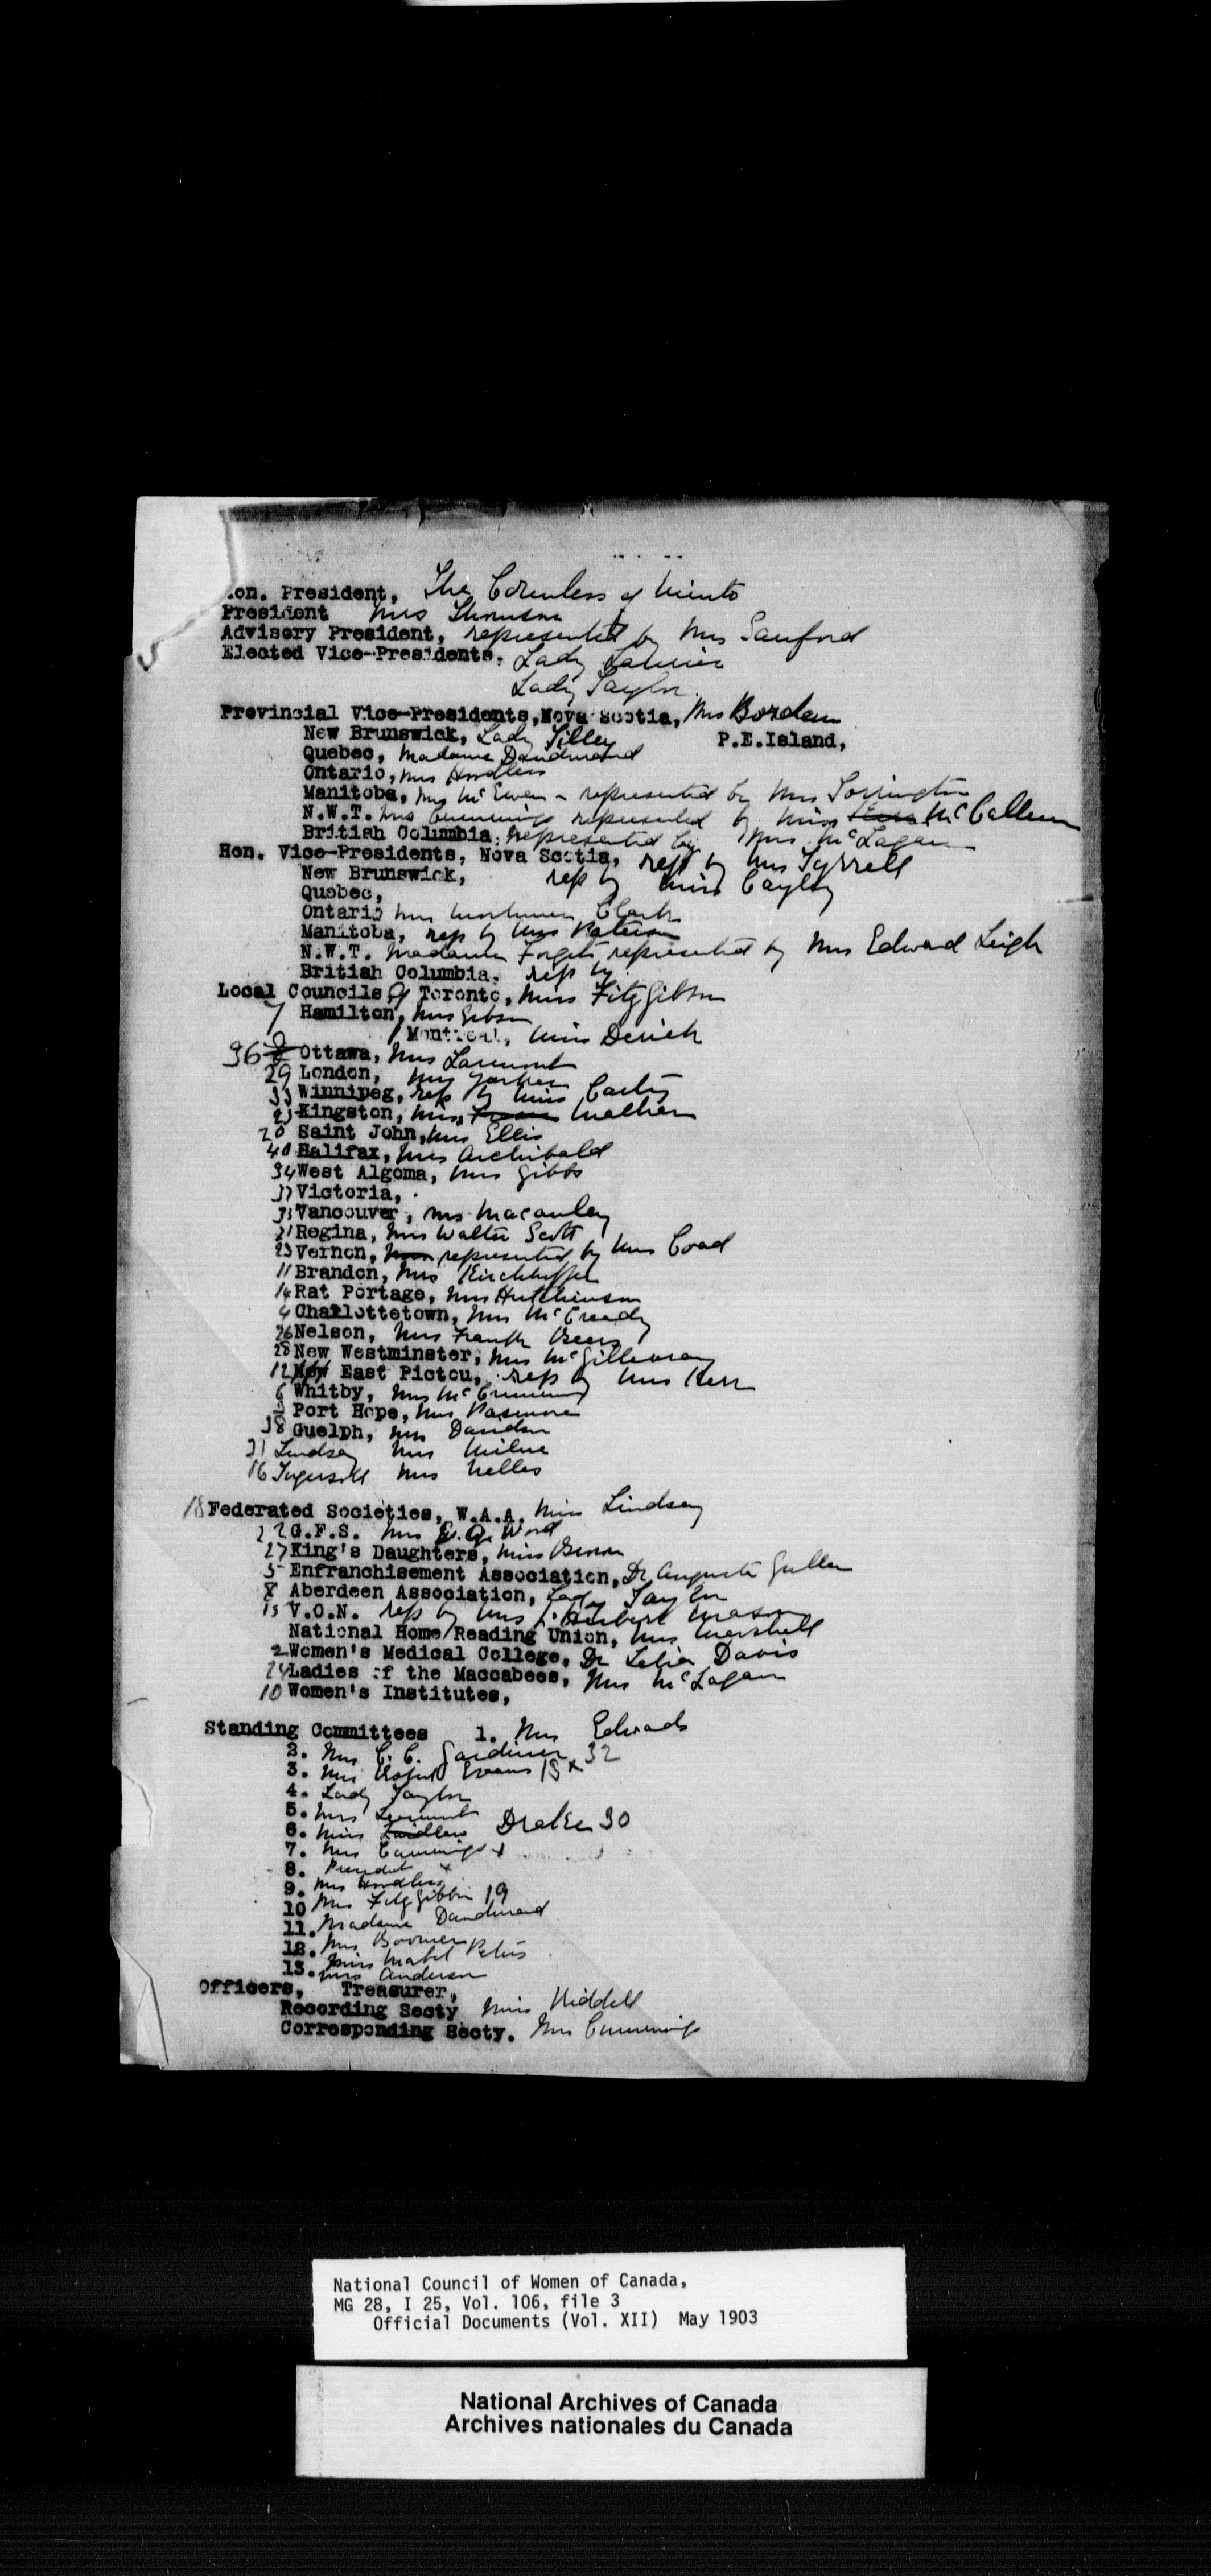 on. President, The Countess of Minto
President Mrs Thomson
Advisory President, represented by Mrs Sanford
Elected Vice-Presidents. Lady Laurier
Lady Taylor.
Provincial Vice-Presidents, Nova Scotia, Mrs Borden
New Brunswick, Lady Tilley P.E.Island,
Quebec, Madame Dandurand
Ontario, Mrs Hoodless
Manitoba, Mrs McEwen - represented by Mrs Torrington
N.W.T. Mrs Cummings represented by Miss McCallum
British Columbia. Represented by Mrs McLagan
Hon. Vice-Presidents, Nova Scotia, rep by Mrs Tyrrell
New Brunswick, rep by Miss Cayley
Quebec,
Ontario Mrs Mortimer Clark
Manitoba, rep by Mrs Paterson
N.W.T. Madame Forget represented by Mrs Edward Leigh
British Columbia. rep by
Local Councils of Toronto, Mrs FitzGibbon
7 Hamilton, Mrs Gibson
1 Montreal, Miss Derick
36 Ottawa, Mrs Larmonth
29 London, Mrs Yorker
33 Winnipeg, rep by Miss Carty
Kingston, Miss Machar
20 Saint John, Mrs Ellis
40 Halifax, Mrs Archibald
34 West Algoma, Mrs Gibbs
37 Victoria, .
Vancouver, Mrs Macaulay
21 Regina, Mrs Walter Scott
23 Vernon, represented by Mrs Coad
11 Brandon, Mrs Kirchhoffer
14 Rat Portage, Mrs Hutchinson
4 Charlottetown, Mrs McCready
26 Nelson, Mrs Frank
28 New Westminster, Mrs McGillivray
12 East Pictou, rep by Mrs Kerr
6 Whitby, Mrs McCrimmon
3 Port Hope, Mrs Pasmore
38 Guelph, Mrs Davidson
31 Lindsay Mrs Milne
16 Ingersoll Mrs Nelles
18 Federated Societies, W.A.A. Miss Lindsay
22 G.F.S. Mrs Ward
27 King's Daughters, Miss Brown
5 Enfranchisement Association, Dr Augusta Gullen
8 Aberdeen Association, Lady Taylor
15 V.O.N. rep by Mrs J. Herbert Mason
National Home Reading Union, Mrs Marshall
2 Women's Medical College, Dr Lelia Davis
24 Ladies of the Maccabees, Mrs McLagan
10 Women's Institutes,
Standing Committees 1. Mrs Edwards
2. Mrs C. C. Gardiner 32
3. Mrs Evans 15 x
4. Lady Taylor
5. Mrs Learmont
6. Miss Laidlaw Drake 30
7. Mrs Cummings x
8. President x
9. Mrs Hoodless
10 Mrs FitzGibbon 19
11. Madame Dandurand
12. Mrs Boomer
13. Miss Mabel Peters
Mrs Anderson
Officers, Treasurer,
Recording Secty Miss Riddell
Corresponding Secty. Mrs Cummings
National Council of Women of Canada,
MG 28, I 25, Vol. 106, file 3
Official Documents (Vol. XII) May 1903
National Archives of Canada
Archives nationales du Canada